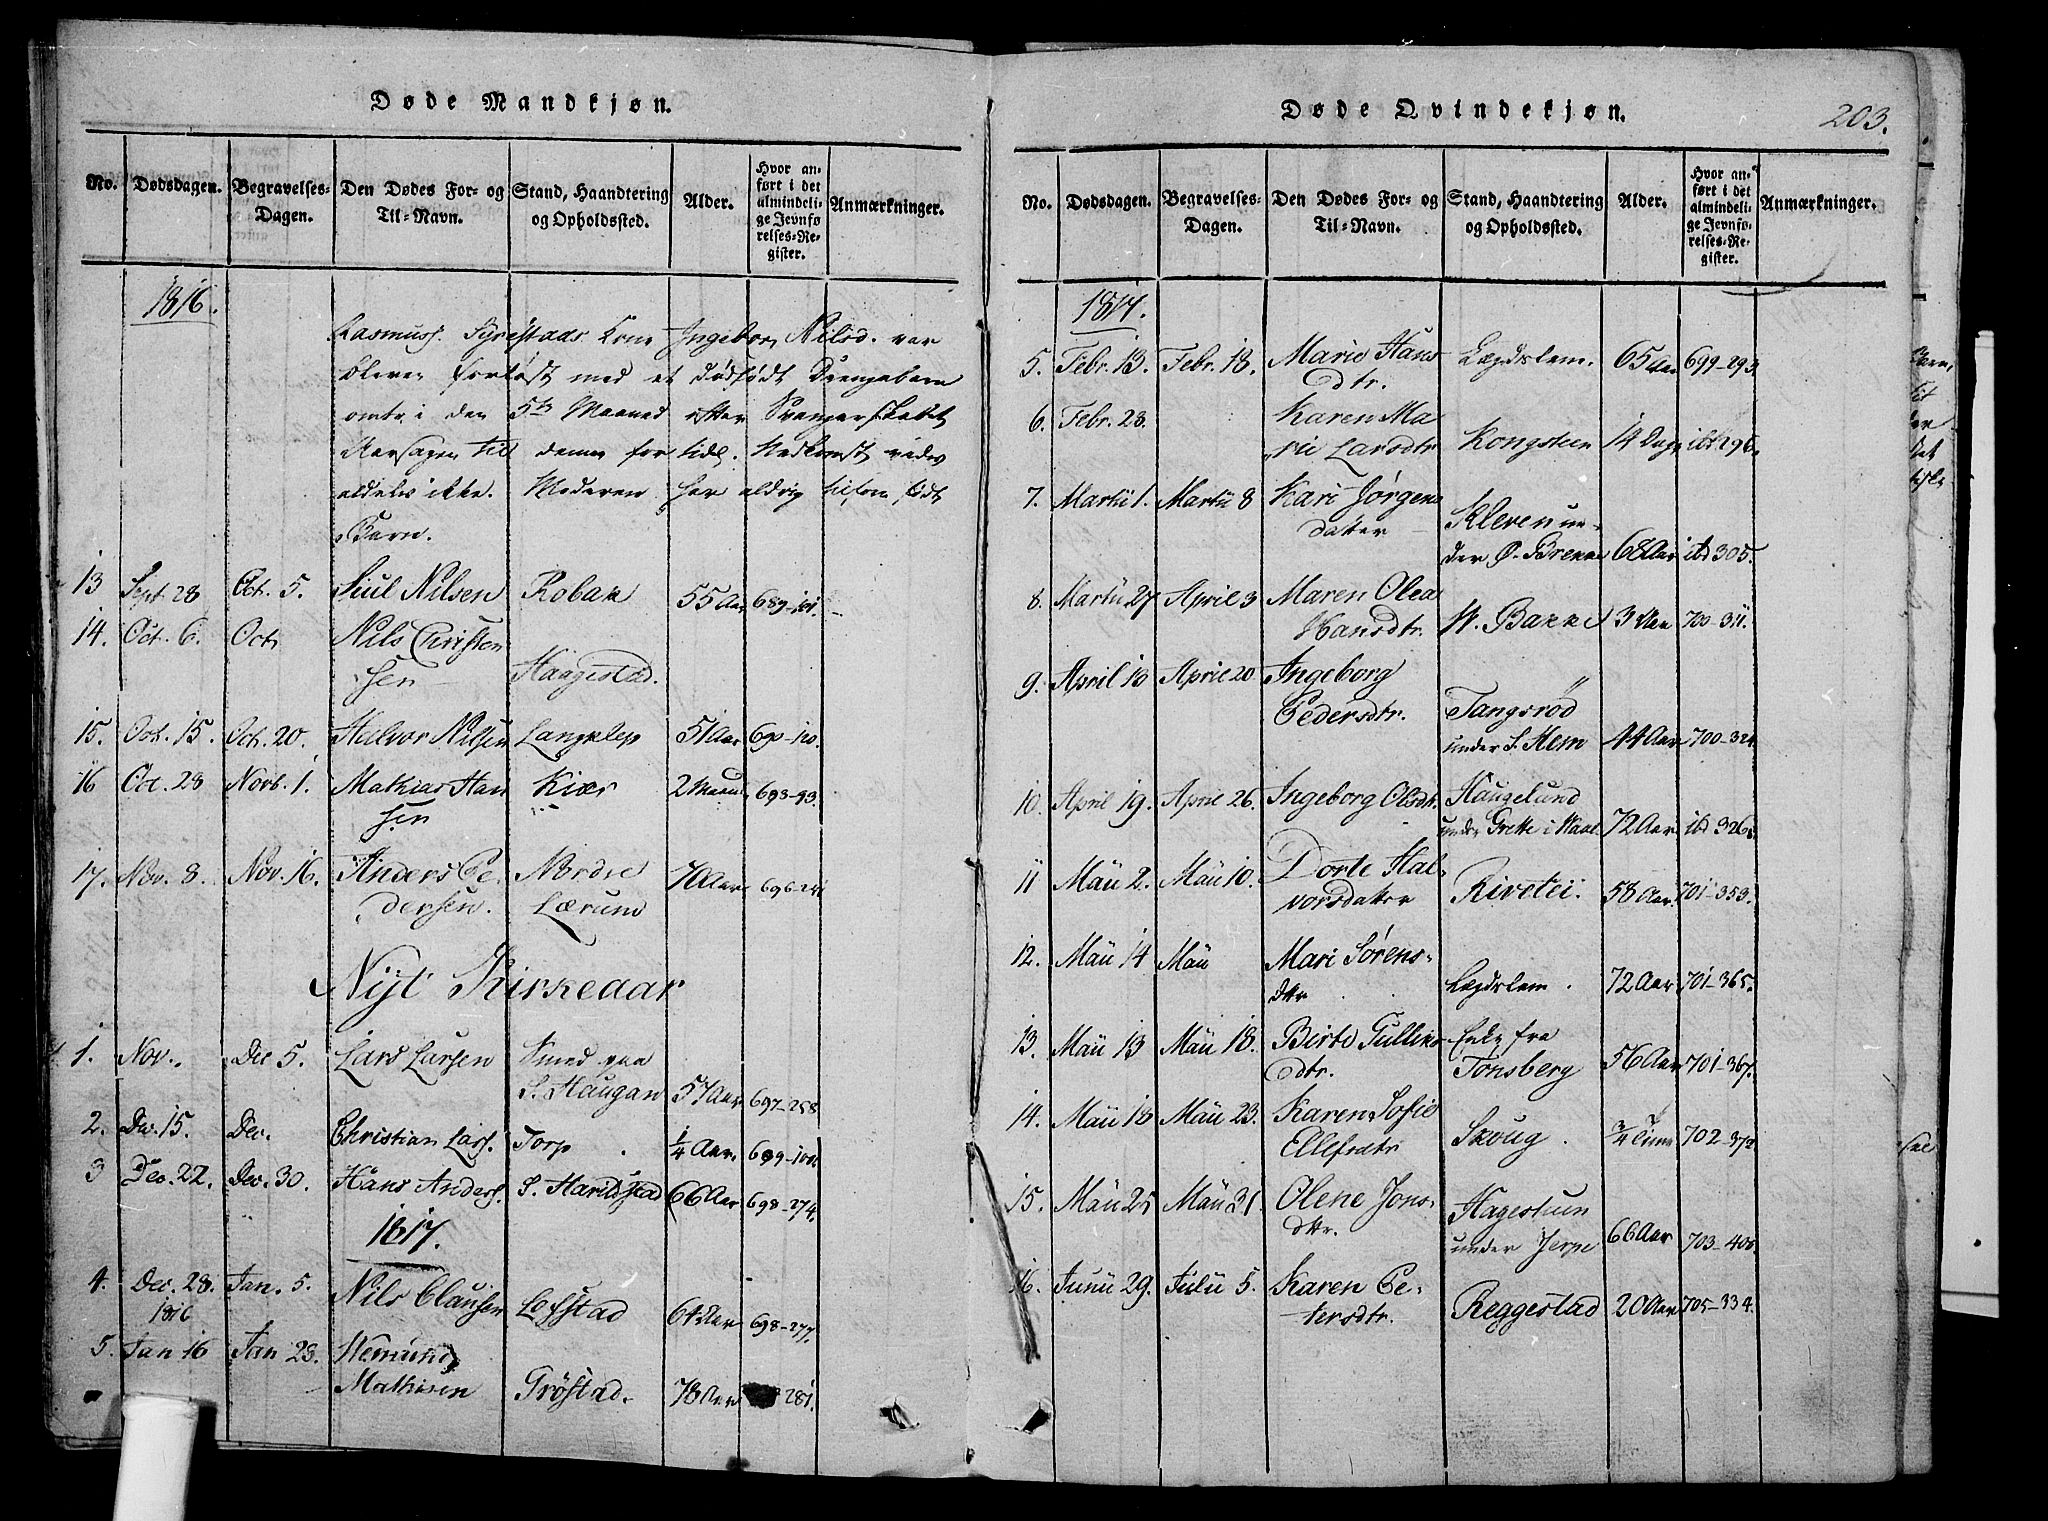 Døde Mandkjøn.
No.
Dødsdagen.
Begravelses-
Dagen.
Den Dødes For- og
Til-Navn.
Stand, Haandtering
og Opholdssted.
Alder.
Hvor an-
ført i det
almindeli-
ge Jevnfø-
relses-Re-
gister.
Anmærkninger.
1816.
Rasmuss. Kone Ingebor Nilsd. var
bleven forløst med et dødfødt Drengebarn
i den 5te Maaned efter Svangerskabet
Aarsagen til denne for tidl. Nedkomst vides
aldeles ikke. Moderen har aldrig tilforn født
Børn.
13 Sept. 28 Oct. 5. Juul Nilsen Robak 55 Aar 689-101.
14. Oct. 6. Oct. Nils Christen
sen Haagestad.
15. Oct. 15. Oct. 20. Halvor Nilsen Langklep 51 Aar 690-110.
16 Oct. 28 Novb. 1. Mathias Han Kiær 2 693-93.
sen
17. Nov. 8. Nov. 16. Anders Pe- Nordre 70 Aar
dersen. Lærum
Nyt Kirkeaar
1. Nov. Dec 5. Lars Larsen Smed paa
S. Haugan 57 Aar 697-288
2. Dec. 15. Dec. Christian Lars. Torp 1/4 Aar.
3 Dec. 22. Dec. 30. Hans Anders. S. Harildstad 66 Aar 698-274.
1817.
4. Dec. 28. Jan. 5. Nils Clausen Lofstad 64 Aar 698-277.
1816
5. Jan 16 Jan 23.
Mathisen Grøstad. 78 Aar 281.
Døde Qvindekjøn.
203.
No.
Dødsdagen.
Begravelses-
Dagen.
Den Dødes For- og
Til-Navn.
Stand, Haandtering
og Opholdssted.
Alder.
Hvor an-
ført i det
almindeli-
ge Jevnfø-
relses-Re-
gister.
Anmærkninger.
1817.
5. Febr. 13. Febr. 18. Marie Hans Lægdslem. 65 Aar 699-293
Dtr.
6. Febr. 23. Karen Ma
rie Larsdtr Kongsteen 14 Dage ibd 296.
7. Martii 1. Martii 8 Kari Jørgens
datter Kleven un-
der Ø. Brekke 68 Aar ibd 305.
8. Martii 27 April 3 Maren Olea
Hansdtr. V. Bakke 3 Aar 700-311.
9. April 10 April 20 Ingeborg
Pedersdtr. Tangsrød
under S. Hem 44 Aar 700-324
10. April 19. April 26. Ingeborg Olsdtr. Haugelund
under Grette i Vaal 72 Aar ibd 326.
11 Maii 2. Maii 10. Dorte Hal-
vorsdatter Rivetei. 58 Aar. 701-353.
12. Maii 14 Maii Mari Sørens-
dtr Lægdslem. 72 Aar 701-365.
13. Maii 13 Maii 18. Birte Gulliks Enke fra
Dtr. Tonsberg 56 Aar 701-367.
14. Maii 18 Maii 23. Karen Sofie
Ellefsdtr Skoug. 3/4 Time 702-372
15. Maii 25 Maii 31. Olene Jons-
dtr. Hagestuen
under Jerpe 66 Aar
16. Junii 29. Julii 5. Karen Pe-
tersdtr. Reggestad 20 Aar 705-334.